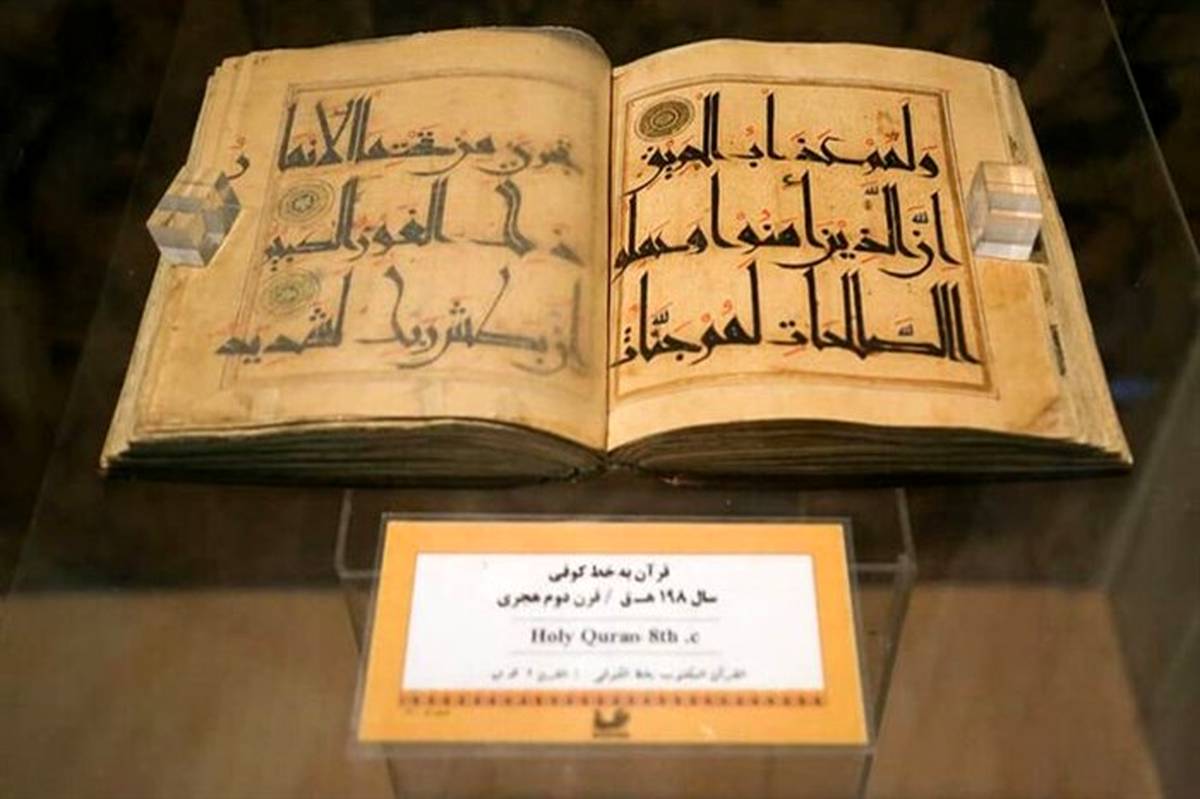 ولهم عذاب الحريق
ان الذين امنوا وعملوا
الصالحات لهم جنات
تجري من تحتها الانهار
ذلك الفوز الكبير
ان بطش ربك لشديد
قرآن به خط کوفی
سال ۱۹۸ هـ ق / قرن دوم هجری
Holy Quran 8th .c
القرآن المکتوب بخط الکوفي / القرن